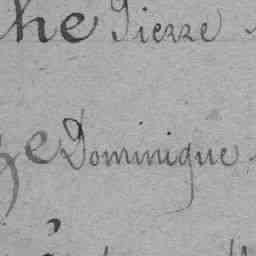 he Pierre
e Dominique